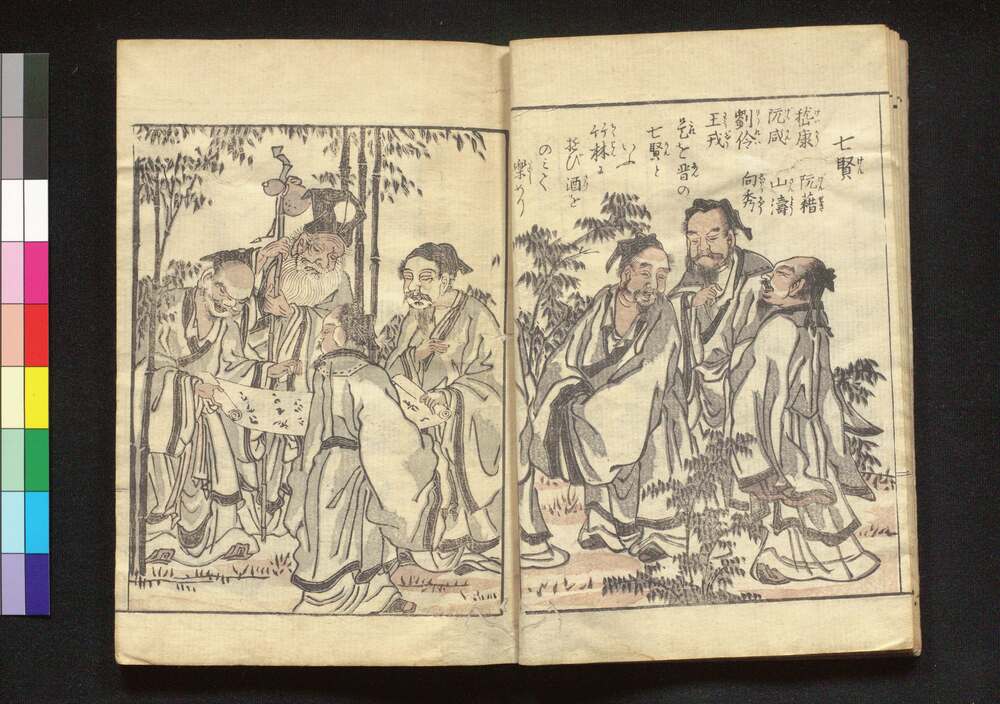 七賢
嵆康 阮籍
阮咸 山濤
劉伶 向秀
王戎
是を晋の
七賢と
いふ
竹林に
遊び酒を
のミて
楽めり